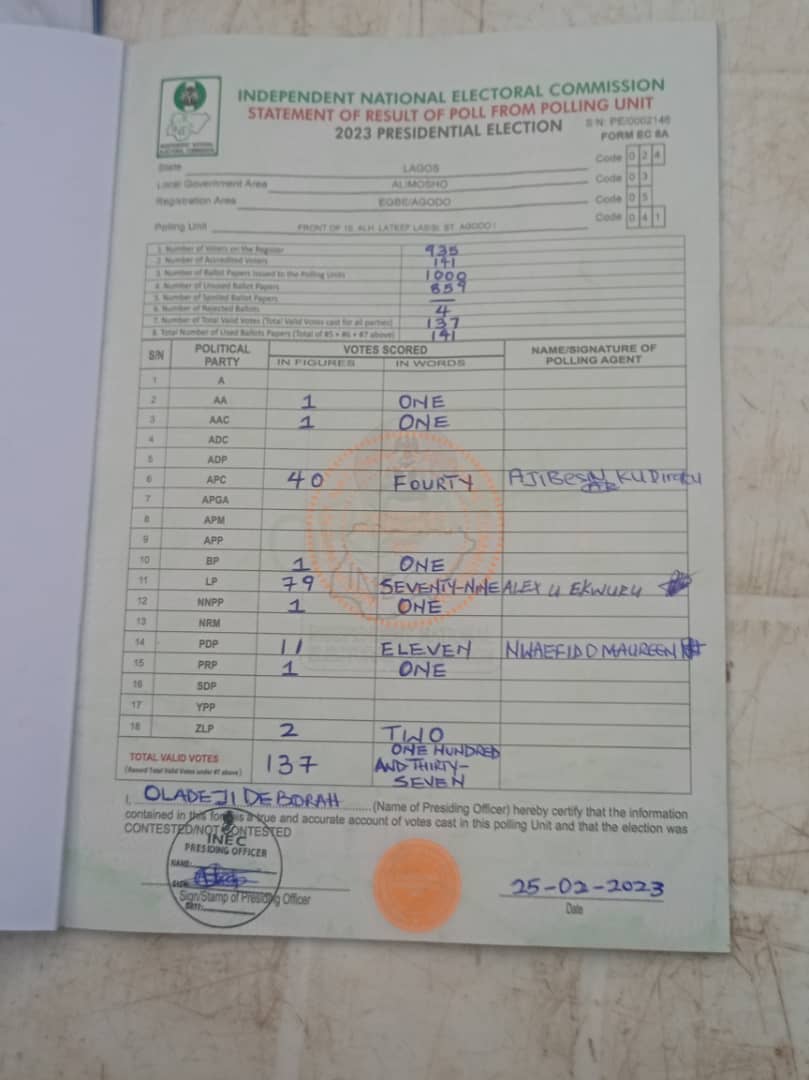 INDEPENDENT NATIONAL ELECTORAL COMMISSION
STATEMENT OF RESULT OF POLL FROM POLLING UNIT
2023 PRESIDENTIAL ELECTION
S/N: PE/0002146
FORM EC 8A
State LAGOS Code 0 2 4
Local Government Area ALIMOSHO Code 0 3
Registration Area EGBE/AGODO Code 0 5
Polling Unit FRONT OF 18, ALH. LATEEF ST. AGODO I Code 0 4 1
1. Number of Voters on the Register 935
2. Number of Accredited Voters 141
3. Number of Ballot Papers Issued to the Polling Units 1000
4. Number of Unused Ballot Papers 859
5. Number of Spoiled Ballot Papers —
6. Number of Rejected Ballots 4
7. Number of Total Valid Votes (Total Valid Votes cast for all parties) 137
8. Total Number of Used Ballots Papers (Total of #5 + #6 + #7 above) 141
S/N POLITICAL PARTY VOTES SCORED NAME/SIGNATURE OF POLLING AGENT
IN FIGURES IN WORDS
1 A
2 AA 1 ONE
3 AAC 1 ONE
4 ADC
5 ADP
6 APC 40 FOURTY
7 APGA
8 APM
9 APP
10 BP 1 ONE
11 LP 79 SEVENTY-NINE ALEX U EKWURU
12 NNPP 1 ONE
13 NRM
14 PDP 11 ELEVEN MAUREEN
15 PRP 1 ONE
16 SDP
17 YPP
18 ZLP 2 TWO
TOTAL VALID VOTES 137 ONE HUNDRED AND THIRTY-SEVEN
(Record Total Valid Votes under #7 above)
I, OLADEJI DEBORAH (Name of Presiding Officer) hereby certify that the information
contained in this form is a true and accurate account of votes cast in this polling Unit and that the election was
CONTESTED/NOT CONTESTED
INEC
PRESIDING OFFICER
NAME:
SIGN:
DATE:
Sign/Stamp of Presiding Officer
25-02-2023
Date